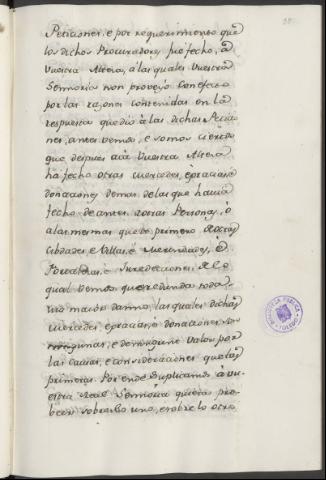 Peticiones, e por requerimiento que
los dichos Procuradores fue fecho, a
Vuestra Alteza, a las quales Vuestra
Sennoria non proveyo Con efecto
por las razones contenidas en la
respuesta que dio a las dichas Peticio
nes, antes vemos, e somos ciertos
que despues aca Vuestra Alteza
ha fecho otras mercedes, e gracias e
donaciones demas de las que havia
fecho de antes a otras Personas, o
a las mesmas que de primero
Cibdades e Villas, e Merindades, e
Fortalezas, e Juredeciones. De lo
qual vemos que redunda toda
via maior danno, las quales dichas
mercedes, e gracias, e donaciones son
ningunas, e de ningunt valor por
las causas, e consideraciones que las
primeras. Por ende Suplicamos a Vu
estra Real Sennoria quiera pro
beer sobre lo uno, e sobre lo otro
BIBLIOTECA PUBLICA
TOLEDO